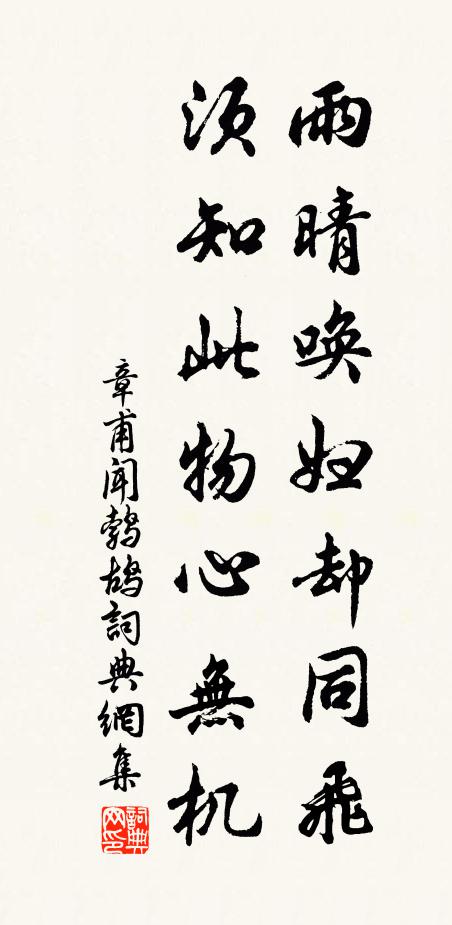 雨晴唤妇却同飛
须知此物心無机
章甫闻鹁鸪詞典網集
詞典网印